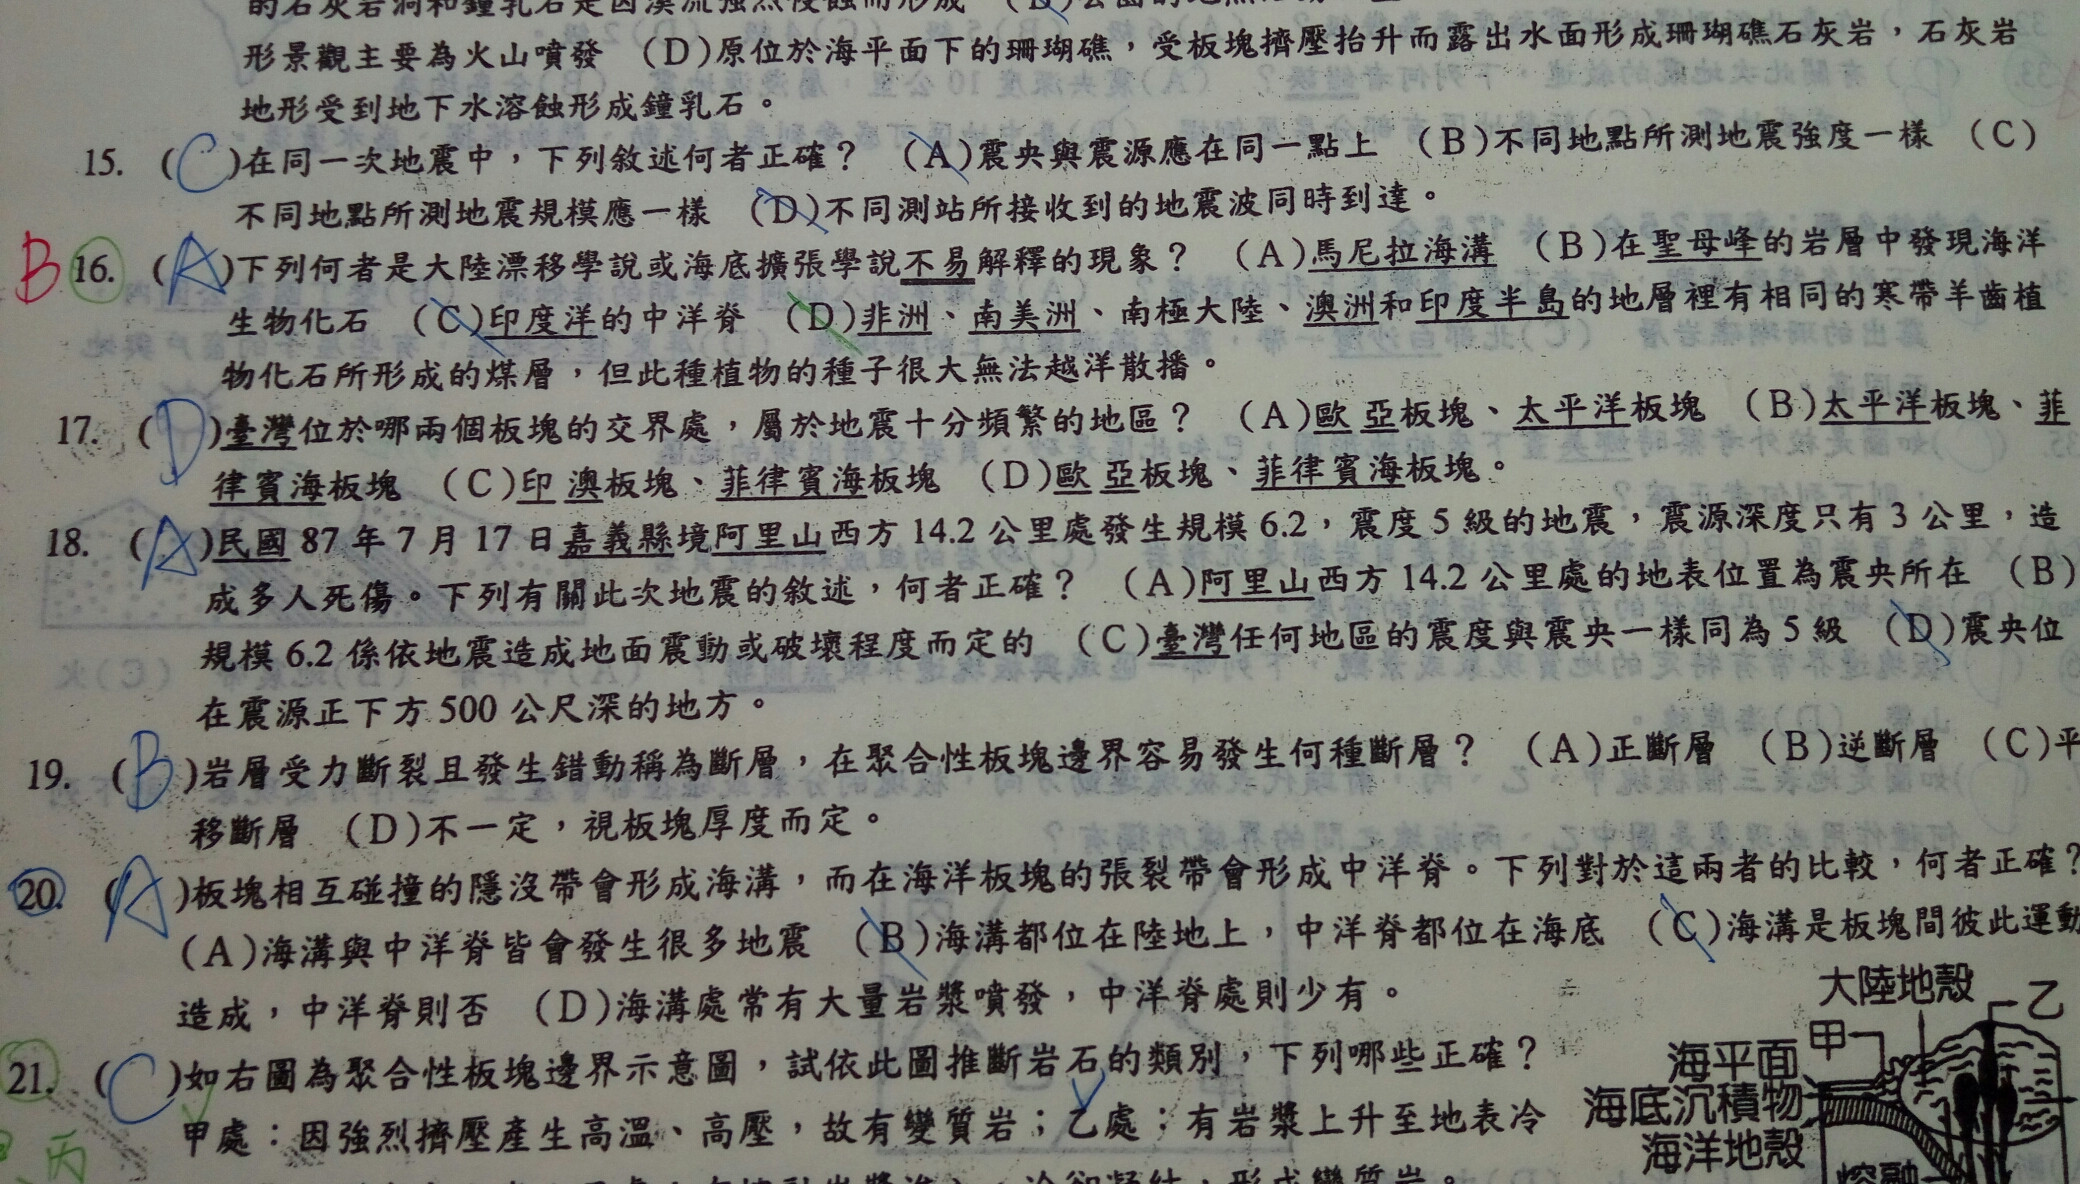 的石灰岩洞和鐘乳石是因溪流強烈侵蝕而形成
形景觀主要為火山噴發 (D)原位於海平面下的珊瑚礁，受板塊擠壓抬升而露出水面形成珊瑚礁石灰岩，石灰岩
地形受到地下水溶蝕形成鐘乳石。
15. (C)在同一次地震中，下列敘述何者正確？ (A)震央與震源應在同一點上 (B)不同地點所測地震強度一樣 (C)
不同地點所測地震規模應一樣 (D)不同測站所接收到的地震波同時到達。
B 16. (A)下列何者是大陸漂移學說或海底擴張學說不易解釋的現象？ (A)馬尼拉海溝 (B)在聖母峰的岩層中發現海洋
生物化石 (C)印度洋的中洋脊 (D)非洲、南美洲、南極大陸、澳洲和印度半島的地層裡有相同的寒帶羊齒植
物化石所形成的煤層，但此種植物的種子很大無法越洋散播。
17. (D)臺灣位於哪兩個板塊的交界處，屬於地震十分頻繁的地區？ (A)歐亞板塊、太平洋板塊 (B)太平洋板塊、菲
律賓海板塊 (C)印澳板塊、菲律賓海板塊 (D)歐亞板塊、菲律賓海板塊。
18. (A)民國 87 年 7 月 17 日嘉義縣境阿里山西方 14.2 公里處發生規模 6.2，震度 5 級的地震，震源深度只有 3 公里，造
成多人死傷。下列有關此次地震的敘述，何者正確？ (A)阿里山西方 14.2 公里處的地表位置為震央所在 (B)
規模 6.2 係依地震造成地面震動或破壞程度而定的 (C)臺灣任何地區的震度與震央一樣同為 5 級 (D)震央位
在震源正下方 500 公尺深的地方。
19. (B)岩層受力斷裂且發生錯動稱為斷層，在聚合性板塊邊界容易發生何種斷層？ (A)正斷層 (B)逆斷層 (C)平
移斷層 (D)不一定，視板塊厚度而定。
20. (A)板塊相互碰撞的隱沒帶會形成海溝，而在海洋板塊的張裂帶會形成中洋脊。下列對於這兩者的比較，何者正確？
(A)海溝與中洋脊皆會發生很多地震 (B)海溝都位在陸地上，中洋脊都位在海底 (C)海溝是板塊間彼此運動
造成，中洋脊則否 (D)海溝處常有大量岩漿噴發，中洋脊處則少有。
21. (C)如右圖為聚合性板塊邊界示意圖，試依此圖推斷岩石的類別，下列哪些正確？
甲處：因強烈擠壓產生高溫、高壓，故有變質岩；乙處：有岩漿上升至地表冷
丙
冷卻凝結，形成變質岩。
大陸地殼
乙
甲
海平面
海底沉積物
海洋地殼
熔融